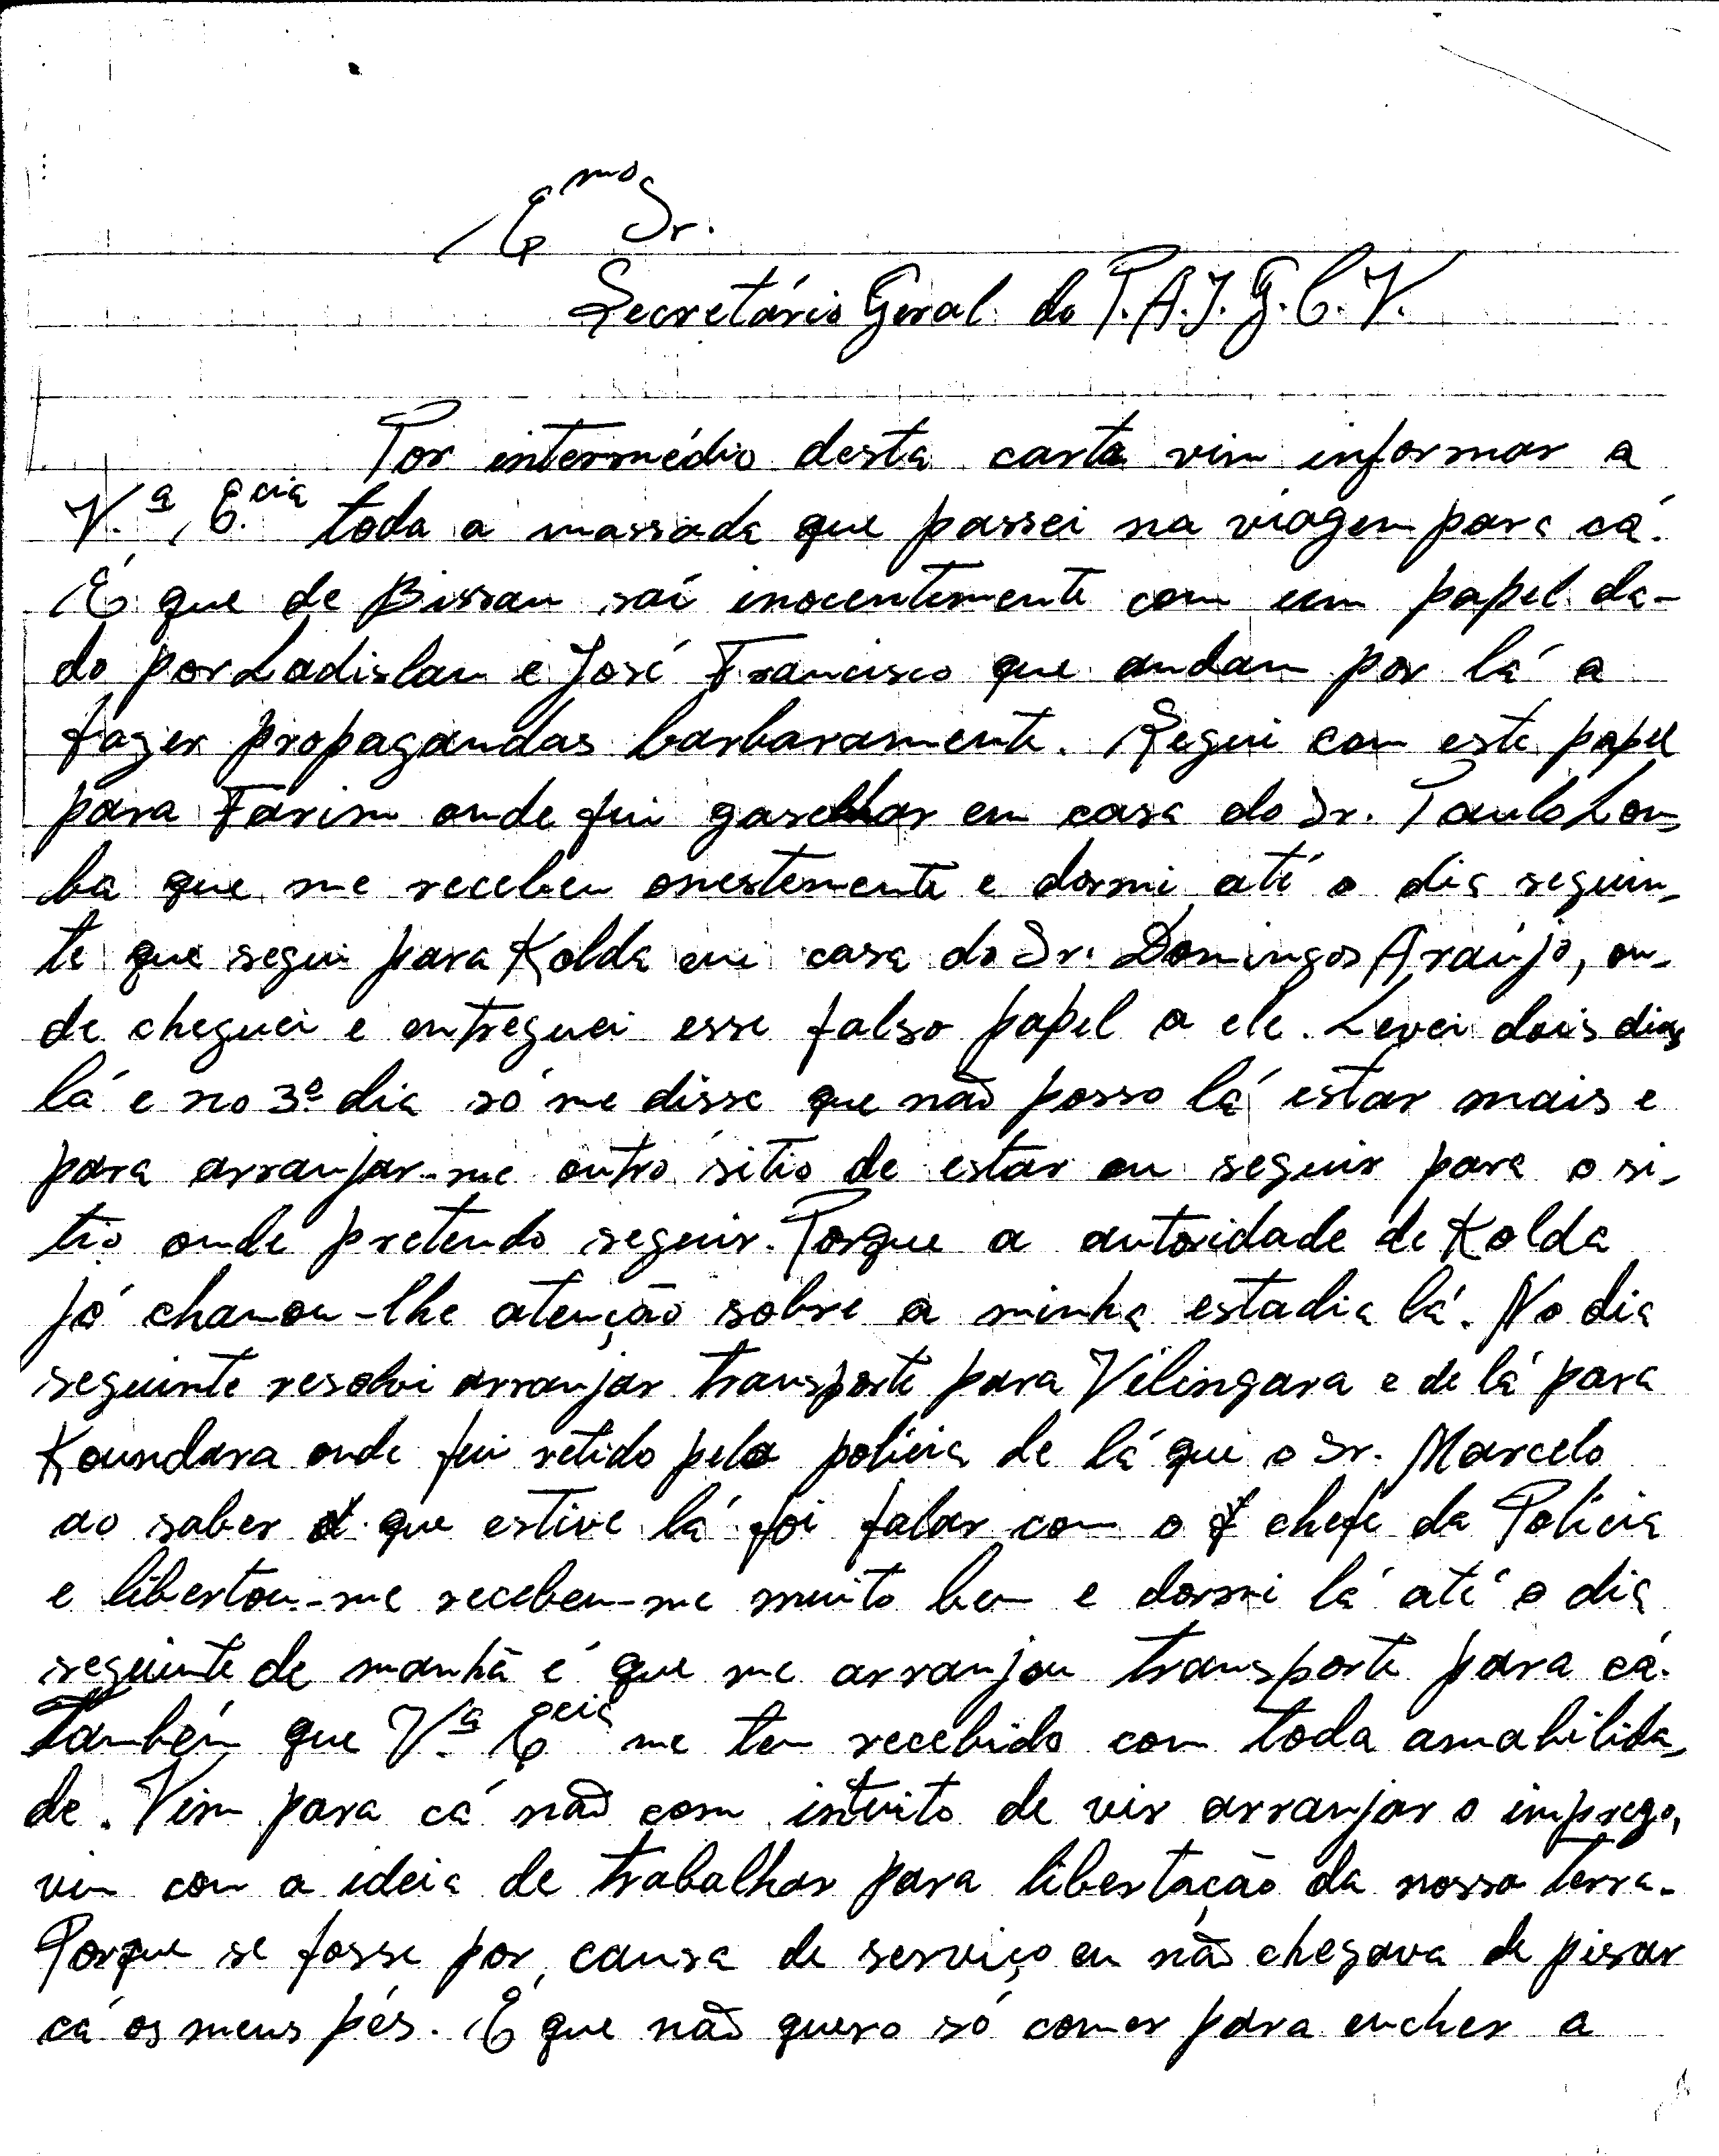 Emo Sr.
Secretário Geral do P.A.I.G.C.V.
Por intermédio desta carta vim informar a
V.ª E.cia toda a massada que passei na viagem para cá.
É que de Bissau saí inocentemente com um papel da-
do por Ladislau e José Francisco que andam por lá a
fazer propagandas barbaramente. Segui com este papel
para Farim onde fui gasalhar em casa do Sr. Paulo Lom-
ba que me recebeu onestemente e dormi até o dia seguin-
te que segui para Kolda em casa do Sr. Domingos Araújo, on-
de cheguei e entreguei esse falso papel a ele. Levei dois dias
lá e no 3º dia só me disse que não posso lá estar mais e
para arranjar-me outro sítio de estar ou seguir para o sí-
tio onde pretendo seguir. Porque a autoridade de Kolda
já chamou-lhe atenção sobre a minha estadia lá. No dia
seguinte resolvi arranjar transporte para Vilingara e de lá para
Koundara onde fui retido pela polícia de lá que o Sr. Marcelo
ao saber que estive lá foi falar com o chefe da Polícia
e libertou-me recebeu-me muito bem e dormi lá até o dia
seguinte de manhã é que me arranjou transporte para cá.
Também que V.ª Ecia me tem recebido com toda amabilida-
de. Vim para cá não com intuito de vir arranjar o imprego,
vim com a ideia de trabalhar para libertação da nossa terra.
Porque se fosse por causa de serviço eu não chegava de pisar
cá os meus pés. É que não quero só comer para encher a